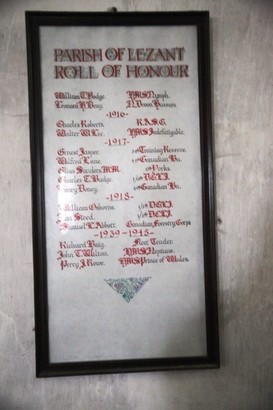 PARISH OF LEZANT
ROLL OF HONOUR
William T. Budge. HMS Nymph.
Leonard H. Doney. 11. Devon Pioneers.
-1916-
Charles Roberts. R.A.S.C.
Walter W. Lee. HMS Indefatigable.
-1917-
Ernest Jasper. Training Reserve.
Wilfred Lane. Canadian Bn.
Sanders M.M. Yorks.
Charles T. Budge. D.C.L.I.
Doney. Canadian Bn.
-1918-
William Osborne. D.C.L.I.
Steed. D.C.L.I.
Samuel L. Abbott. Canadian Forestry Corps
-1939-1945-
Richard Daig. Fleet Tender.
John T. Walton. HMS Neptune.
Percy J. Rowe. HMS Prince of Wales.